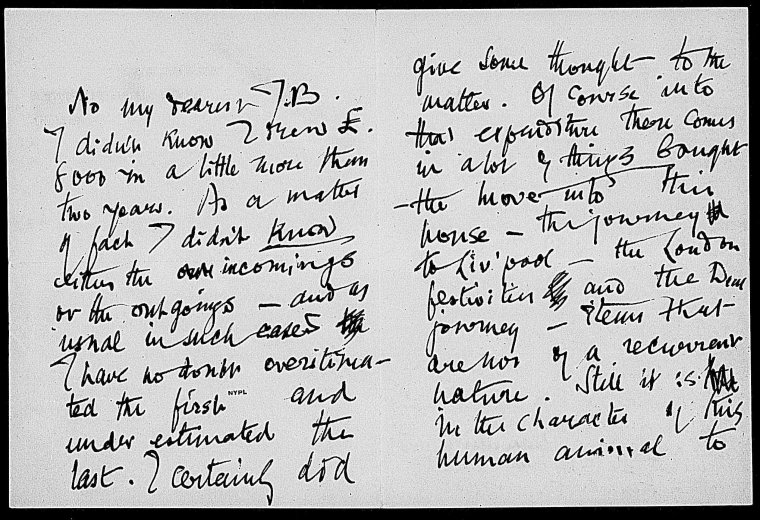 No my dearest J.B.
I didn't know I drew £.
8000 in a little more than
two years. As a matter
of fact I didn't know
either the incomings
or the outgoings – and as
usual in such cases
I have no doubt overestima-
ted the first and
NYPL
under estimated the
last. I certainly did
give some thought to the
matter. Of course into
that expenditure there comes
in a lot of things bought
– the move into this
house – the journey
to Liv'pool – the London
festivities and the
journey – items that
are not of a recurrent
nature. Still it is
in the character of this
human animal to